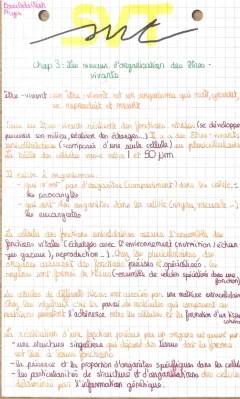 SVT
svt
Chap 3 : Les niveaux d'organisation des êtres-
vivants
Être-vivant : un être-vivant est un organisme qui naît, grandit,
se reproduit et meurt
Tous les êtres-vivants réalisent des fonctions vitales (se développer
percevoir son milieu, réaliser des échanges...) Il y a des êtres-vivants
unicellulaires (composés d'une seule cellule) ou pluricellulaires
La taille des cellules varie entre 1 et 50 µm
Il existe 2 organismes :
- qui n'ont pas d'organites (compartiment) dans les cellules =
les procaryotes
- qui ont des organites dans les cellules (noyau, vacuole...)
les eucaryotes
La cellule des fonctions unicellulaires assure l'ensemble des
fonctions vitales (échanges avec l'environnement (nutrition / échan-
ges gazeux), reproduction...). Chez les pluricellulaires des
organes assurent des fonctions précises = spécialisés. Ces
organes sont formés de tissus (ensemble de cellules spécialisées dans une
fonction)
Les cellules de différents tissus sont associées par une matrice extracellulaire
Chez les végétaux c'est la paroi de molécules qui composent la
matrice permettent l'adhérence entre les cellules et la formation d'un tissu
La réalisation d'une fonction précise par un organe est grâce à :
- une structure singulière qui dépend des tissus dont la forme
est liée à leurs fonctions
- la présence et la proportion d'organites spécifiques dans la cellule
- les particularités de structure et d'organisation des cellules
déterminées par l'information génétique.